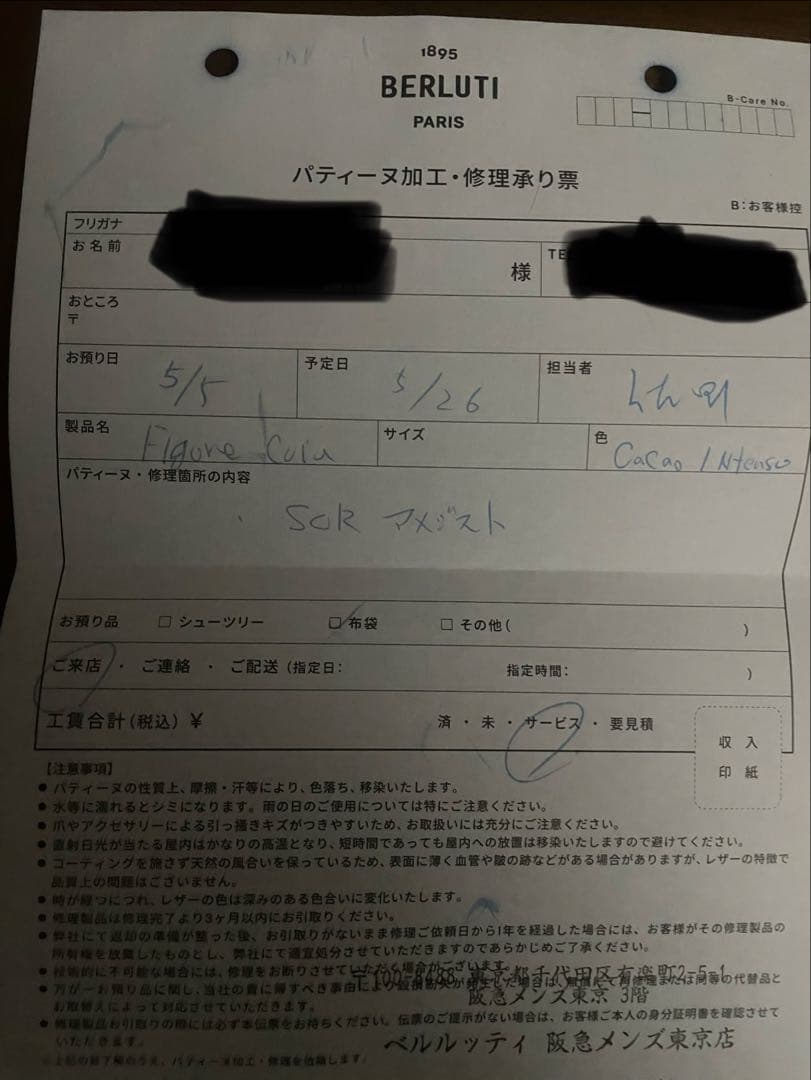 1895
BERLUTI
PARIS
B-Care No.
パティーヌ加工・修理承り票
B：お客様控
フリガナ
お名前
様
TE
おところ
〒
お預り日
5/5
予定日
5/26
担当者
製品名
Figure Cuir
サイズ
色
Cacao Intenso
パティーヌ・修理箇所の内容
アメジスト
お預り品 □ シューツリー □ 布袋 □ その他( )
ご来店 ・ ご連絡 ・ ご配送 (指定日: 指定時間: )
工賃合計(税込) ¥ 済 ・ 未 ・ サービス ・ 要見積
収入
印紙
【注意事項】
● パティーヌの性質上、摩擦・汗等により、色落ち、移染いたします。
● 水等に濡れるとシミになります。雨の日のご使用については特にご注意ください。
● 爪やアクセサリーによる引っ掻きキズがつきやすいため、お取扱いには充分にご注意ください。
● 直射日光が当たる屋内はかなりの高温となり、短時間であっても屋内への放置は移染いたしますので避けてください。
● コーティングを施さず天然の風合いを保っているため、表面に薄く血管や皺の跡などがある場合がありますが、レザーの特徴で
品質上の問題はございません。
● 時が経つにつれ、レザーの色は深みのある色合いに変化いたします。
● 修理製品は修理完了より3ヶ月以内にお引取りください。
● 弊社にて返却の準備が整った後、お引取りがないまま修理ご依頼日から1年を経過した場合には、お客様がその修理製品の
所有権を放棄したものとし、弊社にて適宜処分させていただきますのであらかじめご了承ください。
● 技術的に不可能な場合には、修理をお断りさせていただく場合がございます。
● 万が一お預り品に関し、当社の責に帰すべき事由 が発生した場合は、無償にて再修理または同等の代替品と
お取替えによって対応させていただきます。
東京都千代田区有楽町2-5-1
阪急メンズ東京 3階
● 修理製品お引取りの際には必ず本伝票をお持ちください。伝票のご提示がない場合は、お客様ご本人の身分証明書を確認させて
いただきます。
ベルルッティ 阪急メンズ東京店
※上記の旨了解のうえ、パティーヌ加工・修理を依頼します。